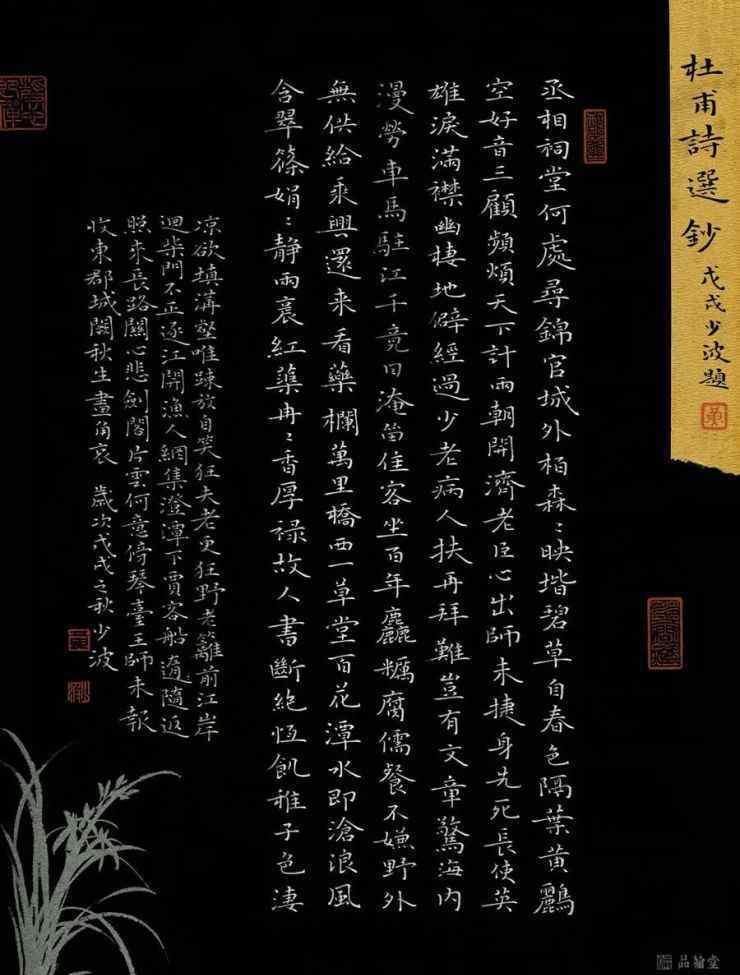 杜甫詩選鈔
戊戌少波題
丞相祠堂何處尋錦官城外柏森〻映堦碧草自春色隔葉黃鸝
空好音三顧頻煩天下計兩朝開濟老臣心出師未捷身先死長使英
雄淚滿襟幽棲地僻經過少老病人扶再拜難豈有文章驚海內
漫勞車馬駐江干竟日淹留佳客坐百年麤糲腐儒餐不嫌野外
無供給乘興還来看藥欄萬里橋西一草堂百花潭水即滄浪風
含翠篠娟〻静雨裛紅蕖冉〻香厚禄故人書斷絶恆飢稚子色淒
凉欲填溝壑唯疎放自笑狂夫老更狂野老籬前江岸
迴柴門不正逐江開漁人網集澄潭下賈客船隨返
照来長路關心悲劍閣片雲何意傍琴臺王師未報
收東郡城闕秋生畫角哀 歲次戊戌之秋少波
品翰堂